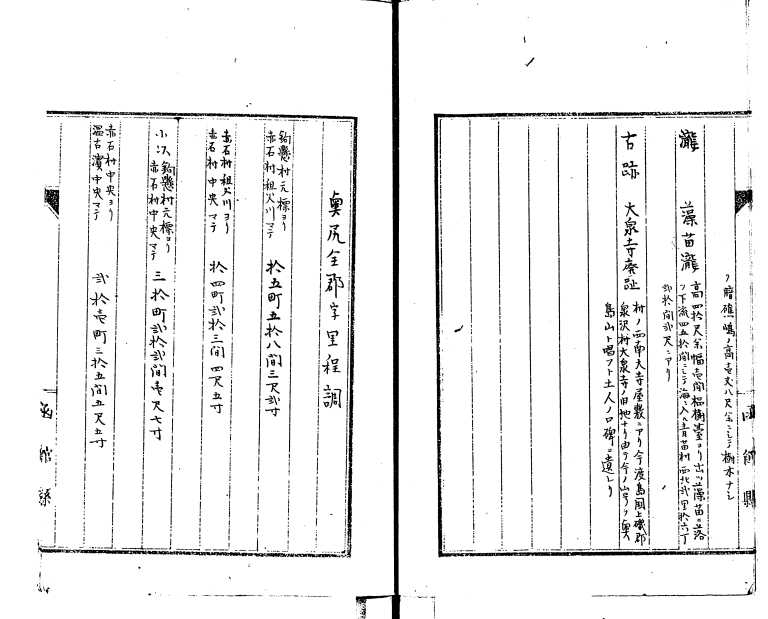 ノ贈礁嶋ノ高壱丈八尺全ニシテ樹木ナシ
瀧　藻苗瀧
高四拾尺余幅壱間榀樹臺ヨリ出ツ藻苗ニ落
ツ下流四五拾間ニシテ海ニ入ル青苗村西北弐里拾六丁
弐拾間弐尺ニアリ
古跡　大泉寺廃趾
村ノ西南大寺屋敷ニアリ今渡島国上磯郡
泉沢村大泉寺ノ旧地ナリ由テ今ノ山号ヲ奥
島山ト唱フト土人ノ口碑ニ遺レリ
函館縣
奥尻全郡字里程調
釣懸村元標ヨリ
赤石村祖父川マテ
拾五町五拾八間三尺弐寸
赤石村祖父川ヨリ
赤石村中央マテ
拾四町弐拾三間四尺五寸
小以
釣懸村元標ヨリ
赤石村中央マテ
三拾町弐拾弐間壱尺七寸
赤石村中央ヨリ
温古濱中央マテ
弐拾壱町三拾五間五尺五寸
函館縣